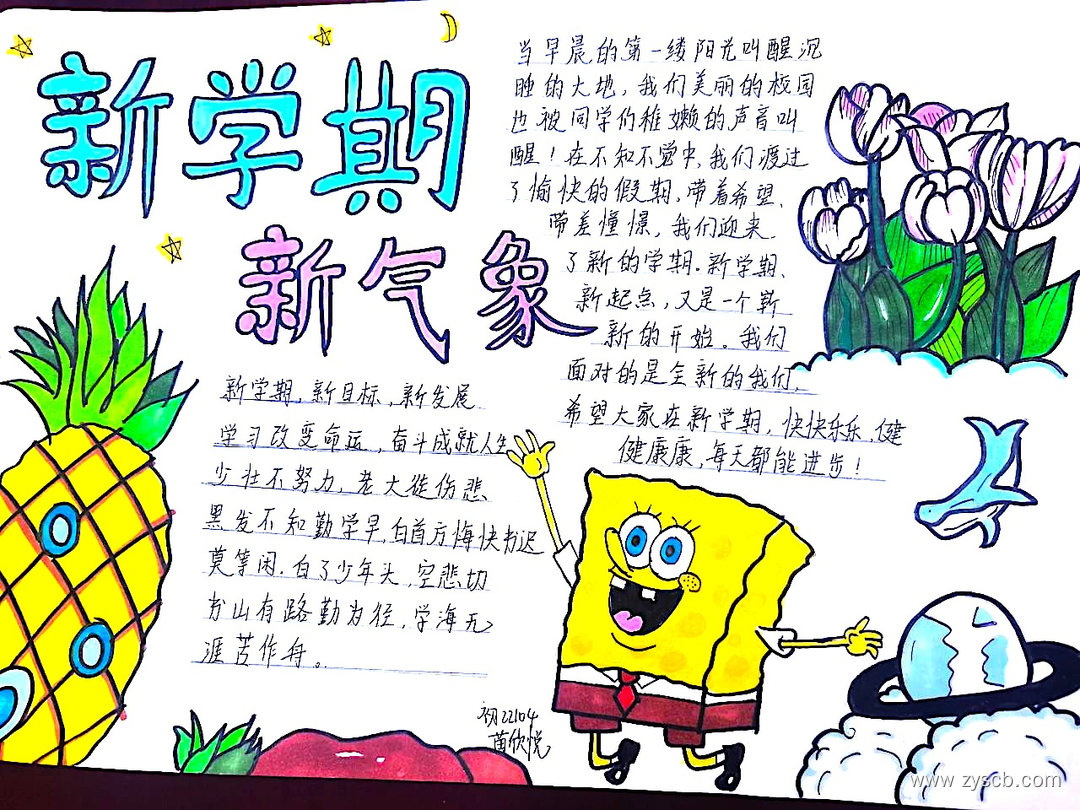 新学期
新气象
当早晨的第一缕阳光叫醒沉
睡的大地，我们美丽的校园
也被同学们稚嫩的声音叫
醒！在不知不觉中，我们渡过
了愉快的假期，带着希望、
带着憧憬，我们迎来
了新的学期。新学期、
新起点，又是一个崭
新的开始。我们
面对的是全新的我们，
希望大家在新学期，快快乐乐，健
健康康，每天都能进步！
新学期，新目标，新发展
学习改变命运，奋斗成就人生
少壮不努力，老大徒伤悲
黑发不知勤学早，白首方悔快书迟
莫等闲，白了少年头，空悲切
书山有路勤为径，学海无
涯苦作舟。
初22104
苗欣悦
www.zyscb.com